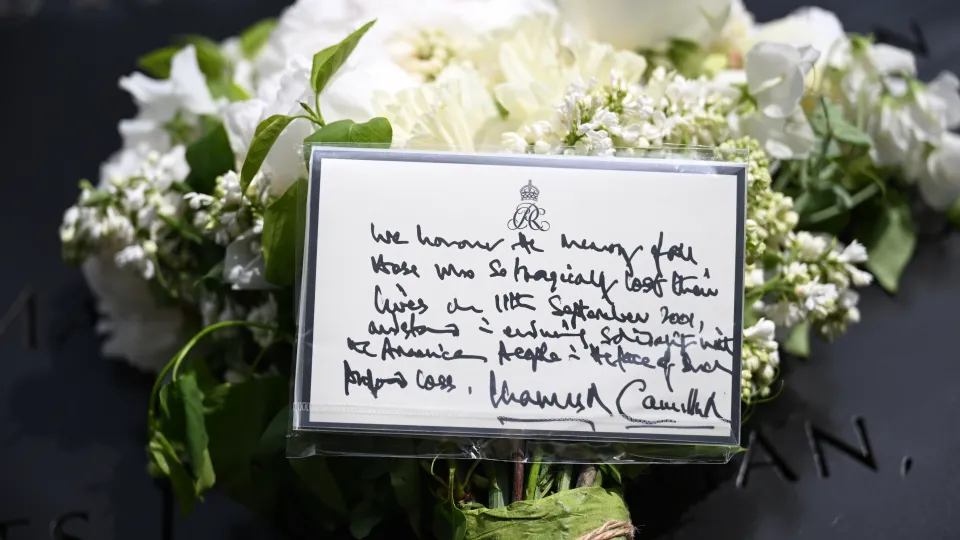 We honour the memory of all
those who so tragically lost their
lives on 11th September 2001,
and stand in enduring solidarity with
the American people in the face of such
profound loss.
Charles R Camilla R
AN.
ES